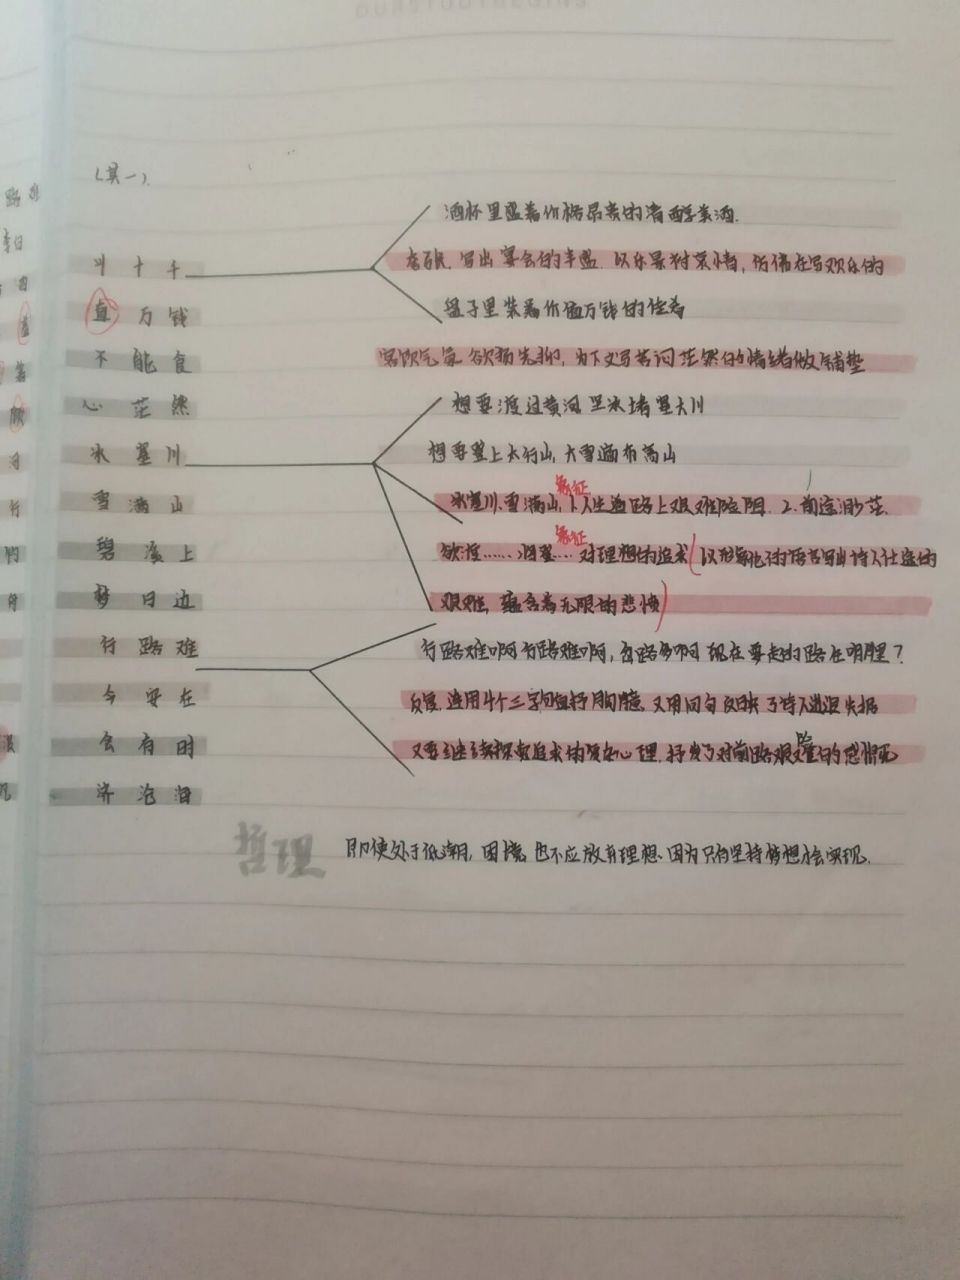 OURSTUDYBEGINS
(其一).
酒杯里盛着价格昂贵的清醇美酒.
斗十千
夸张, 写出宴会的丰盛. 以乐景衬哀情, 仿佛在写欢乐的
直万钱
盘子里装着价值万钱的佳肴
不能食
宴饮气氛 欲扬先抑, 为下文写苦闷茫然的情绪做铺垫
心茫然
想要渡过黄河 坚冰堵塞大川
冰塞川
想要登上太行山, 大雪遍布高山
象征
雪满山
冰塞川、雪满山, 1.人生道路上艰难险阻. 2.前途渺茫.
象征
碧溪上
欲渡……, 将登… 对理想的追求(以形象化的语言写出诗人仕途的
梦日边
艰难, 蕴含着无限的悲愤)
行路难
行路难啊行路难啊, 岔路多啊 现在要走的路在哪里?
今安在
反复, 连用4个三字句直抒胸臆, 又用问句 反映了诗人进退失据
会有时
又要继续探索追求的复杂心理, 抒发了对前路艰难的感慨
济沧海
哲理
即使处于低潮, 困境, 也不应放弃理想, 因为只有坚持梦想会实现.
路难
李白